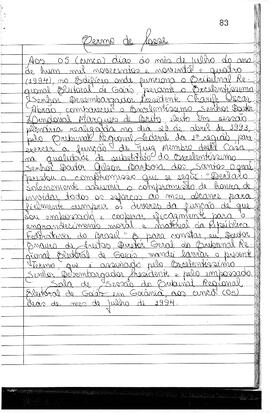 83
Termo de Posse
Aos 05 (cinco) dias do mês de julho do ano
de hum mil novecentos e noventa e quatro
(1994), no Edifício onde funciona o Tribunal Re-
gional Eleitoral de Goiás, perante o Excelentíssimo
Senhor Desembargador Presidente Charife Oscar
Abrão, compareceu o Excelentíssimo Senhor Doutor
Lindoval Marques de Brito, eleito em sessão
plenária realizada no dia 23 de abril de 1993,
pelo Tribunal Regional Federal da 1ª região, para
exercer a função de Juiz Membro desta Casa,
na qualidade de substituto do Excelentíssimo
Senhor Doutor Wilson Barbosa dos Santos
prestou o compromisso que se segue: "Declaro
solenemente assumir o compromisso de honra de
envidar todos os esforços ao meu alcance para
fielmente cumprir os deveres da função de que
sou empossado e cooperar eficazmente para o
engrandecimento moral e material da República
Federativa do Brasil". E para constar eu, Doutor
de Freitas, Diretor Geral do Tribunal Re-
gional Eleitoral de Goiás, mandei lavrar o presente
Termo que é assinado pelo Excelentíssimo
Senhor Desembargador Presidente e pelo empossado.
Sala de Sessão do Tribunal Regional
Eleitoral de Goiás, em Goiânia, aos cinco (05)
dias do mês de julho de 1994.